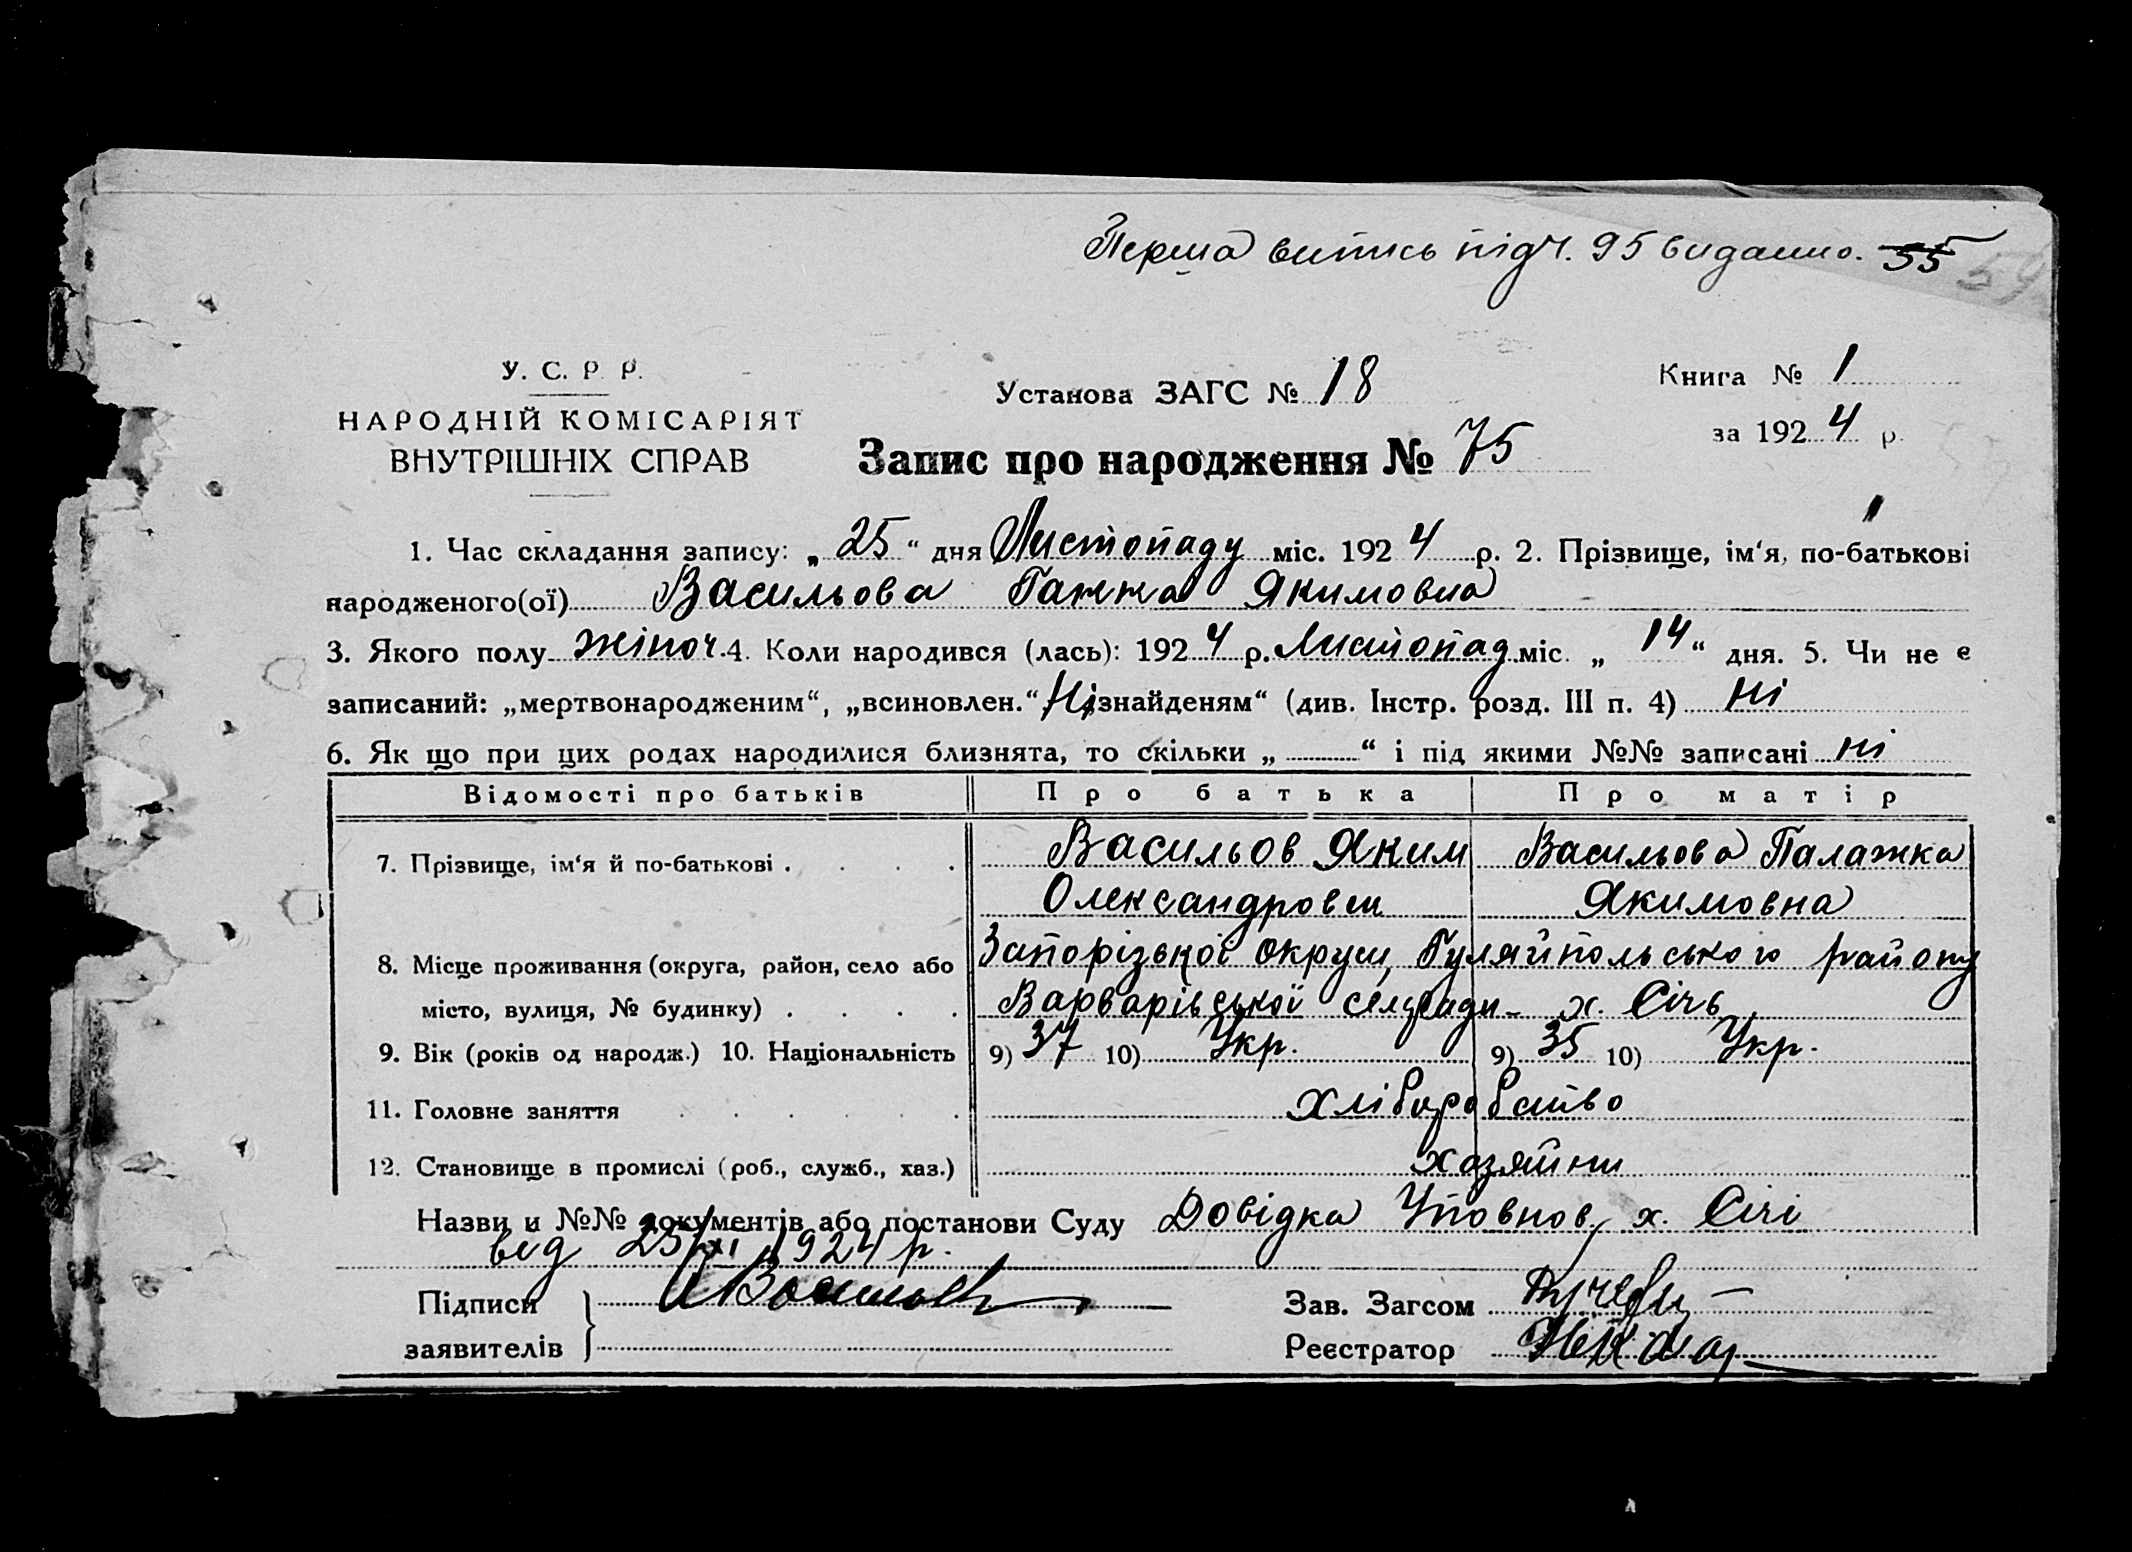 Перша випись під ч. 95 видано. 55 59
У. С. Р. Р.
НАРОДНІЙ КОМІСАРІЯТ
ВНУТРІШНІХ СПРАВ
Установа ЗАГС № 18
Книга № 1
за 1924 р.
Запис про народження № 75
1
1. Час складання запису: „25“ дня Листопаду міс. 1924 р. 2. Прізвище, ім‘я, по-батькові
народженого(ої) Васильова Ганна Якимовна
3. Якого полу жіноч. 4. Коли народився (лась): 1924 р. Листопад міс. „14“ дня. 5. Чи не є
записаний: „мертвонародженим“, „всиновлен.“ Ні „знайденям“ (див. Інстр. розд. III п. 4) ні
6. Як що при цих родах народилися близнята, то скільки „ “ і під якими №№ записані ні
Відомості про батьків Про батька Про матір
7. Прізвище, ім‘я й по-батькові . . . . Васильов Яким Васильова Палажка
Олександрович Якимовна
8. Місце проживання (округа, район, село або Запорізької округи, Гуляйпольського району
місто, вулиця, № будинку) . . . . Варварівської сельради х. Січь
9. Вік (років од народж.) 10. Національність 9) 37 10) Укр. 9) 35 10) Укр.
11. Головне заняття . . . . . . Хліборобство
12. Становище в промислі (роб., служб., хаз.) хозяйни
Назви и №№ документів або постанови Суду Довідка Уповнов. х. Січі
від 25/XI 1924 р.
Підписи Васильов Зав. Загсом
заявителів Реєстратор